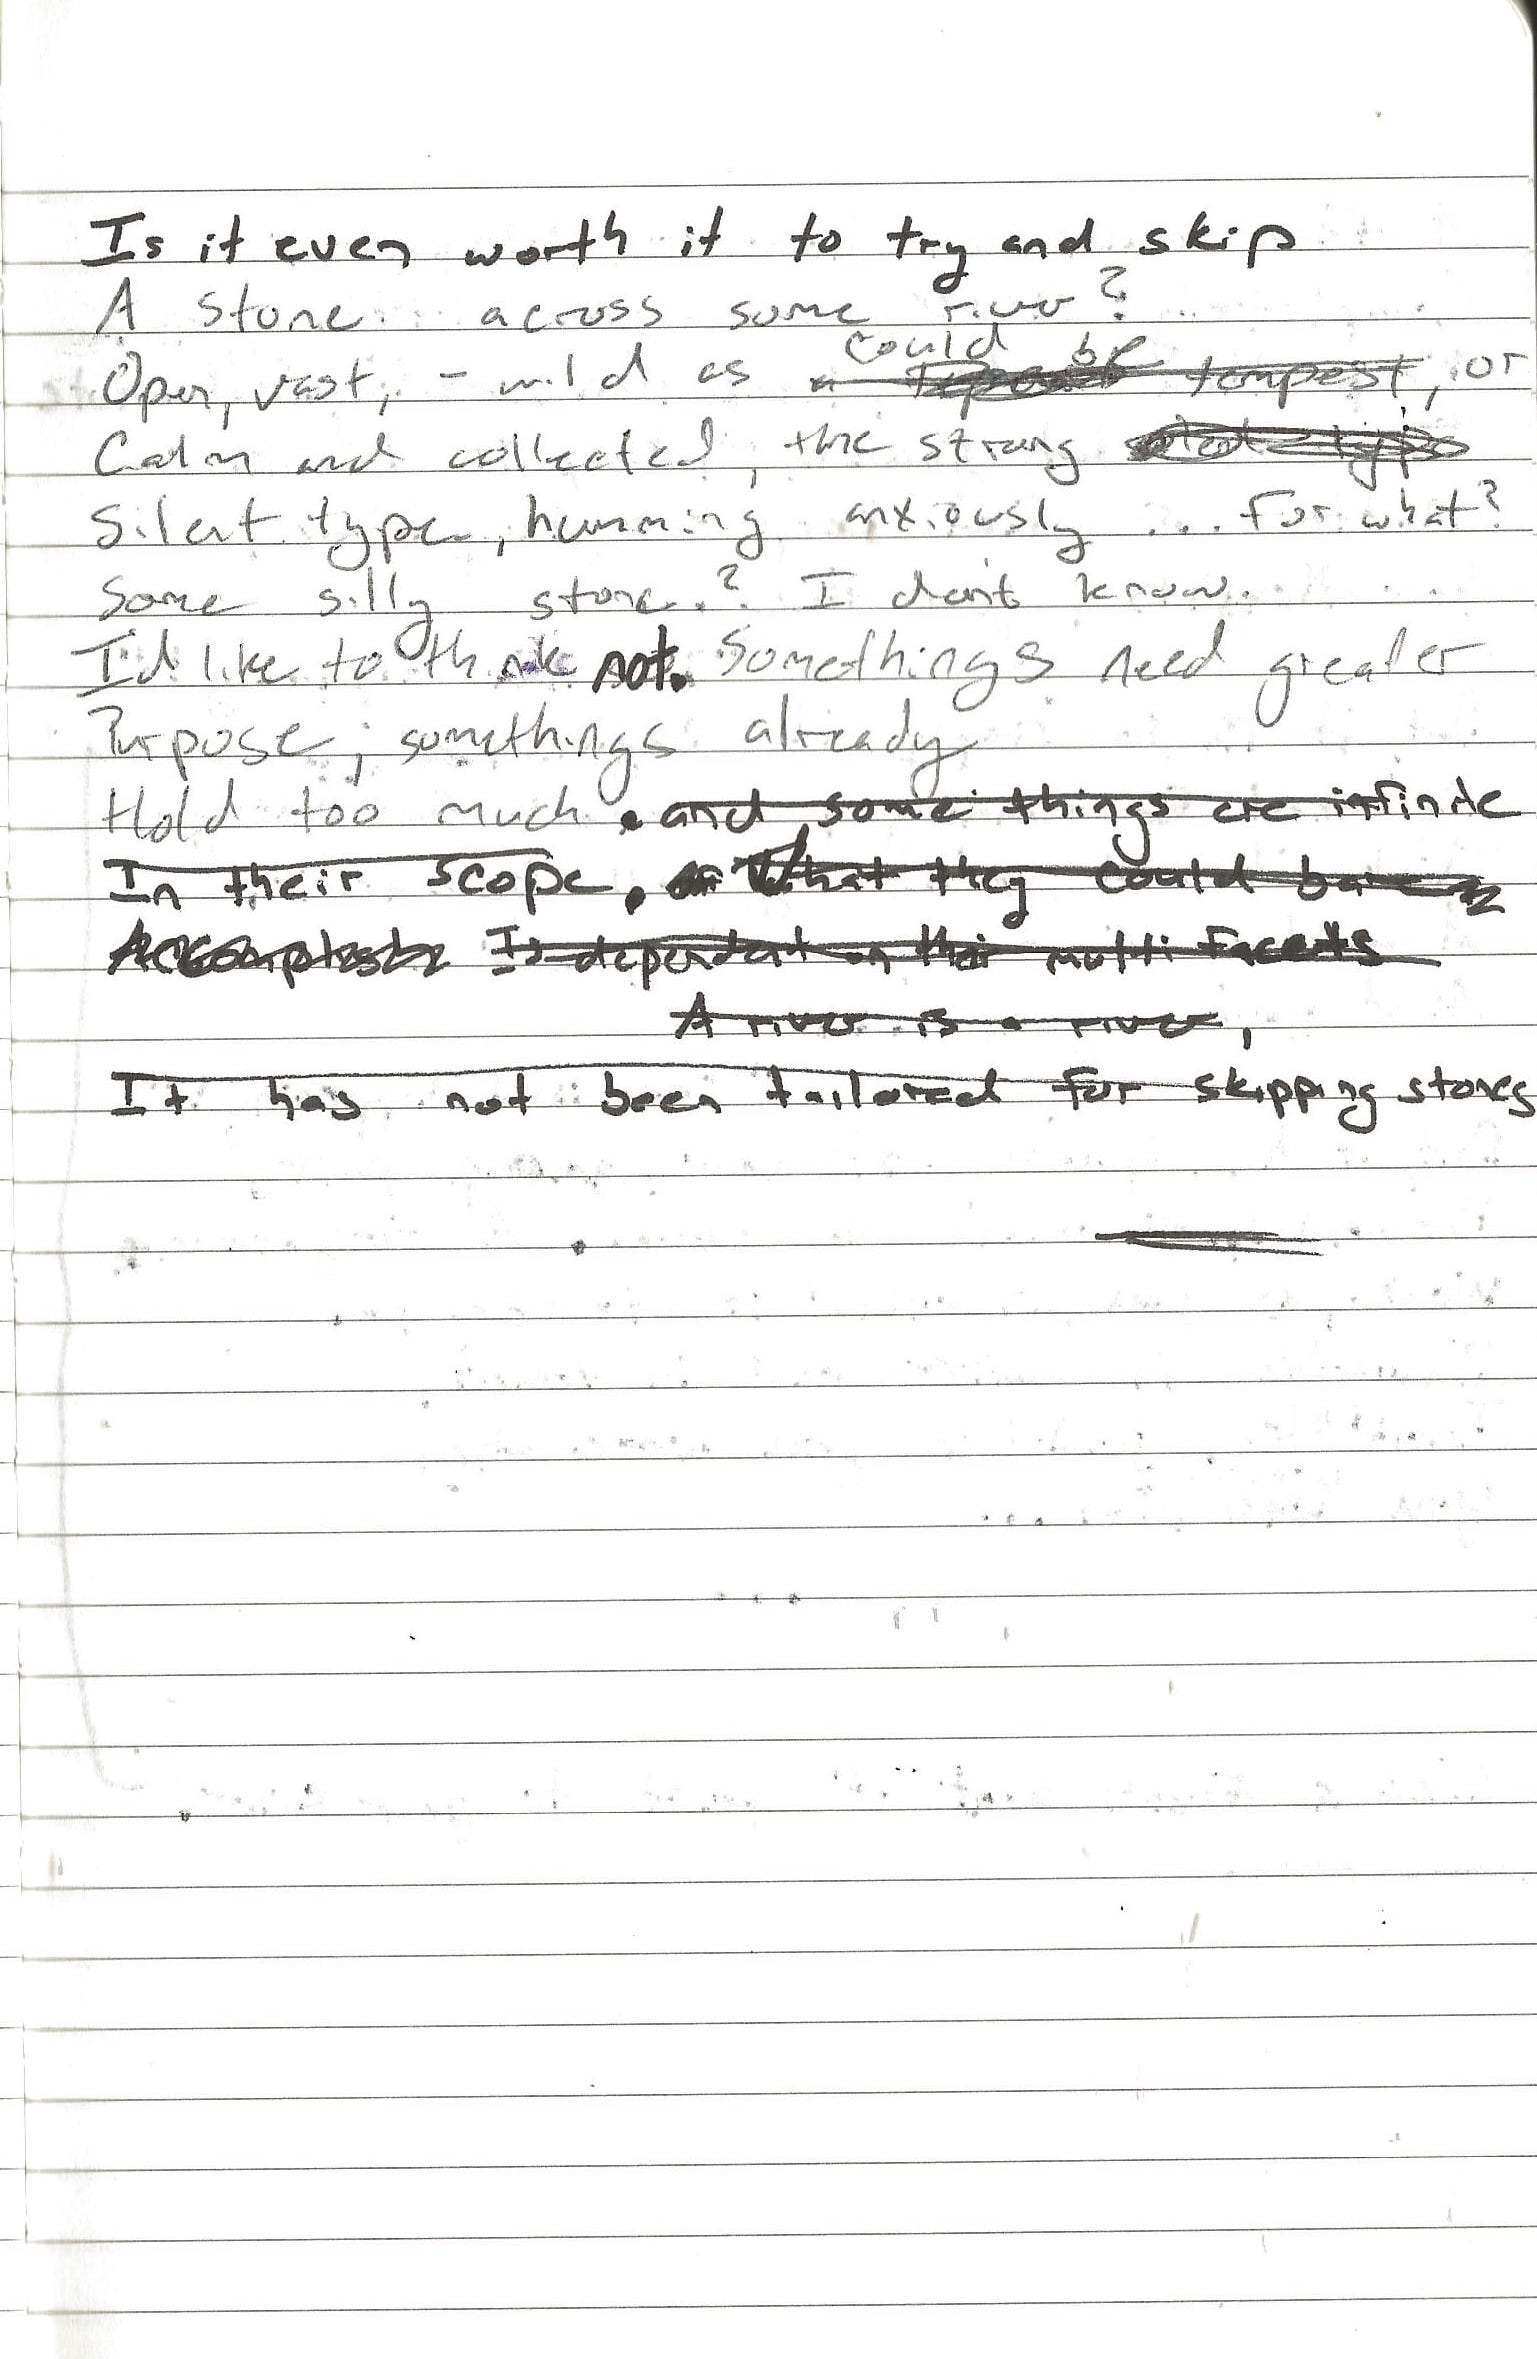 Is it even worth it to try and skip
A stone across some river?
could be
Open, vast, - wild as a tempest, or
Calm and collected, the strong
Silent type, humming anxiously ... For what?
Some silly stone? I don't know.
I'd like to think not. Somethings need greater
Purpose; somethings already
Hold too much. and some things are infinite
In their scope. What they could
Accomplish Is dependent on their multi facets
A river is a river,
It has not been tailored for skipping stones